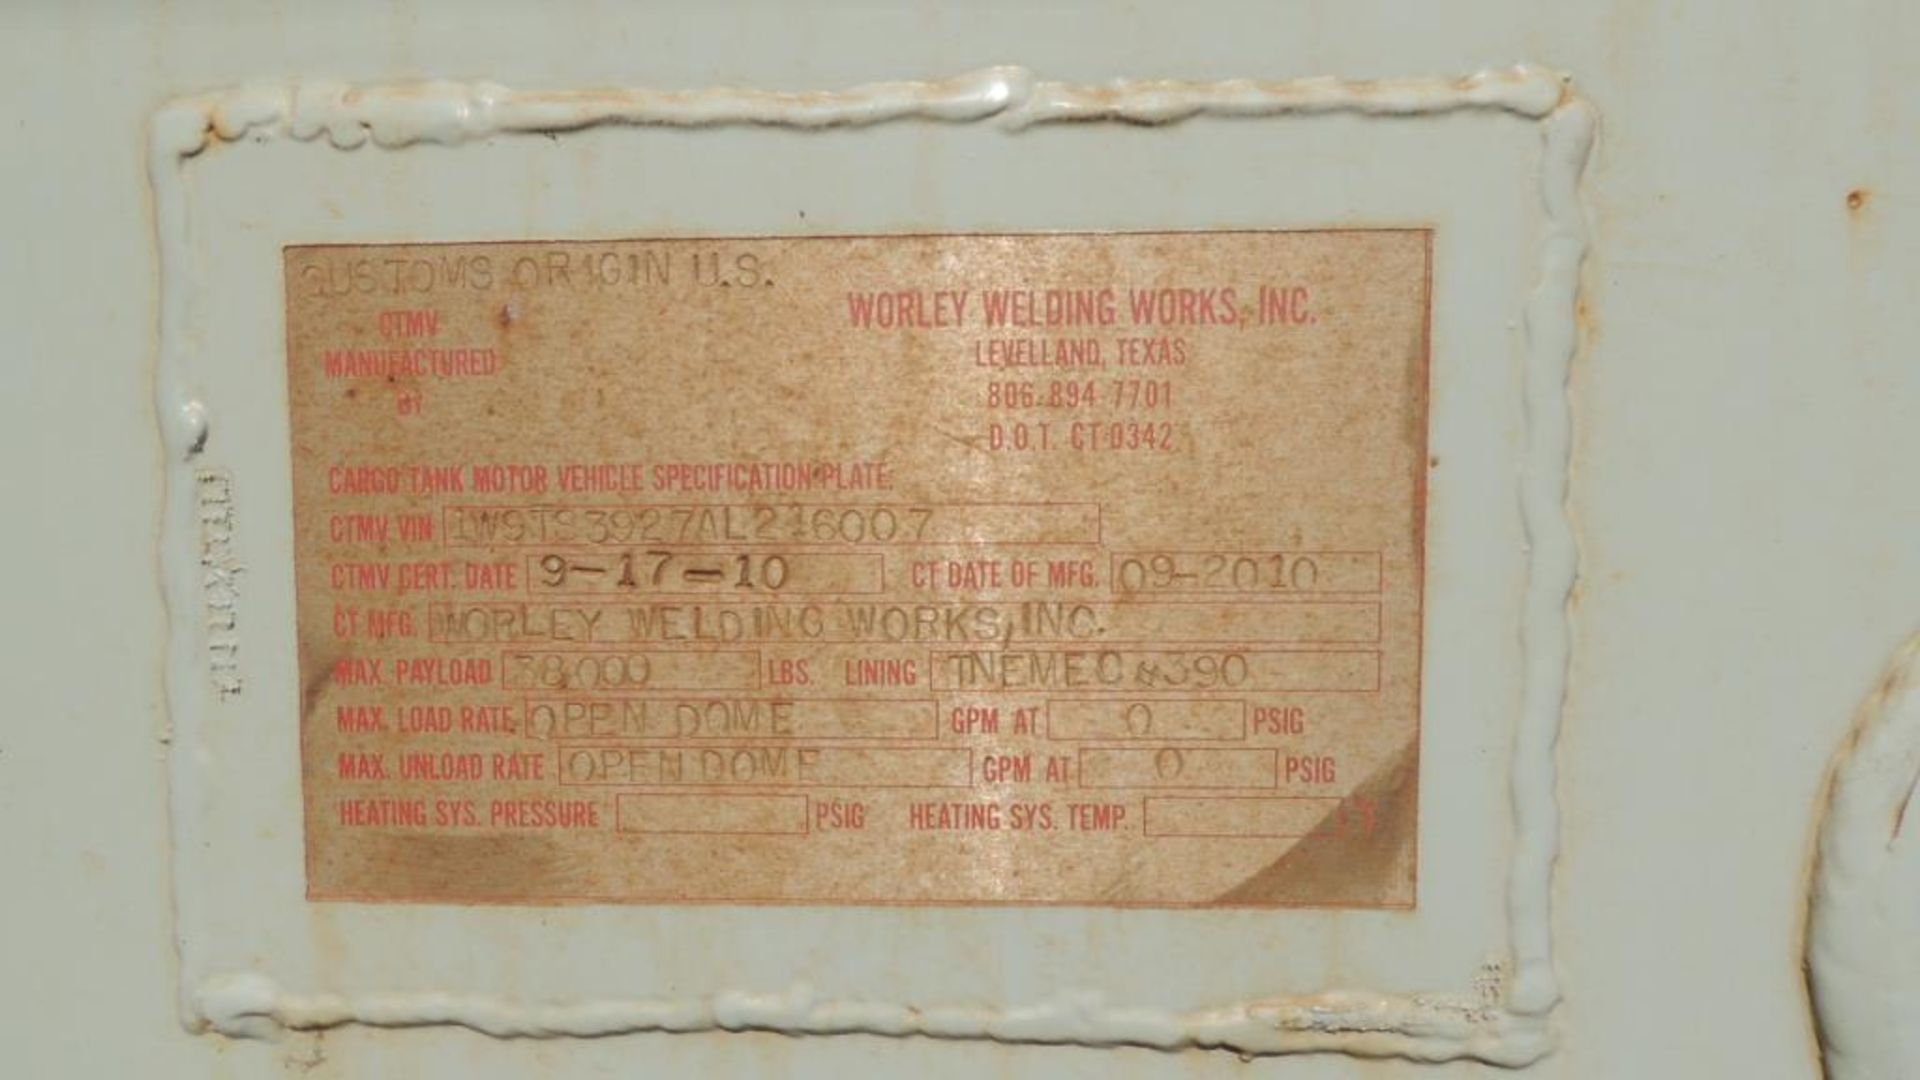 CUSTOMS ORIGIN U.S.
CTMV
MANUFACTURED
BY
WORLEY WELDING WORKS, INC.
LEVELLAND, TEXAS
806-894-7701
D.O.T. CT-0342
CARGO TANK MOTOR VEHICLE SPECIFICATION PLATE:
CTMV VIN 1W9TS3927AL216007
CTMV CERT. DATE 9-17-10 CT DATE OF MFG. 09-2010
CT MFG. WORLEY WELDING WORKS, INC.
MAX. PAYLOAD 38,000 LBS. LINING TNEMEC #390
MAX. LOAD RATE OPEN DOME GPM AT 0 PSIG
MAX. UNLOAD RATE OPEN DOME GPM AT 0 PSIG
HEATING SYS. PRESSURE PSIG HEATING SYS. TEMP.